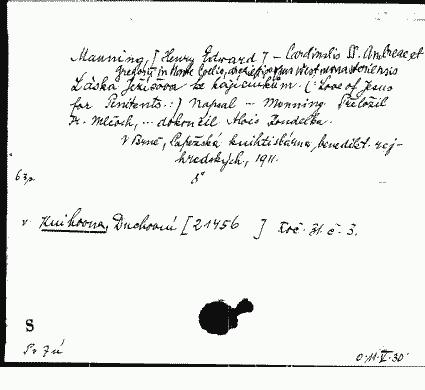 Manning, [Henry Edward] – Cardinalis SS. Andreae et
Gregorii in Monte Coelio, archiepiscopus Westmonasteriensis
Láska Ježíšova ke kajícníkům. (:Love of Jesus
for Penitents.:) Napsal – Manning. Přeložil
Fr. Mlčoch, ... dokončil Alois Koudelka.
V Brně, Papežská knihtiskárna, benedikt. raj-
hradských, 1911.
63 p. 8°
v Knihovna, Duchovní [21456 ] Roč. č. 3.
S